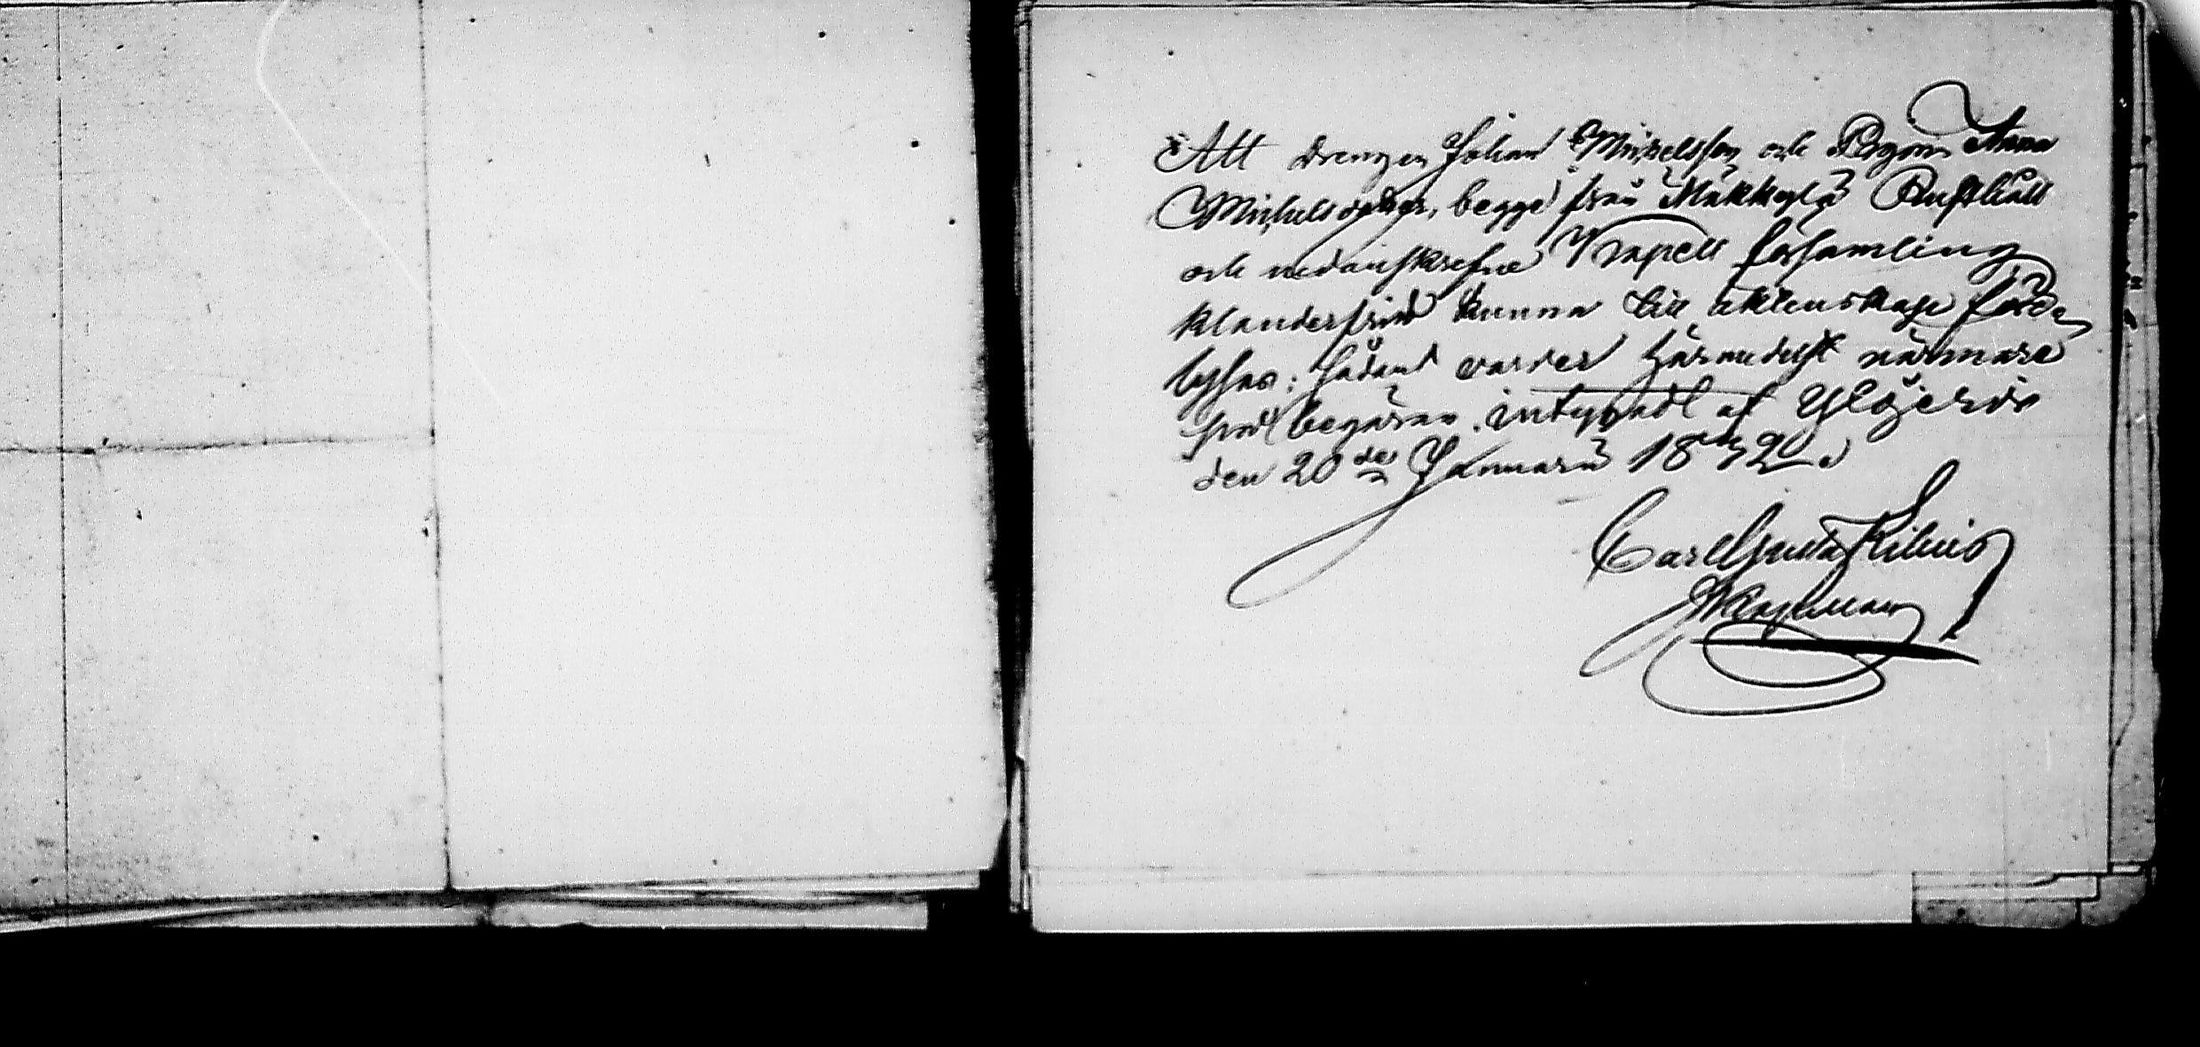 Att Drengen Johan Michelsson och Pigan Anna
Michelsdotter, begge från Mäkkylä Rusthåll
och nedanskrefne Kapell församling
klanderfritt kunna till äktenskap förde
lysas; sådant varder härmedelst närmare
på begäran intygadt af Ylöjervi
den 20de Januarii 1842.
Carl Gusta Kilius
Kapellan